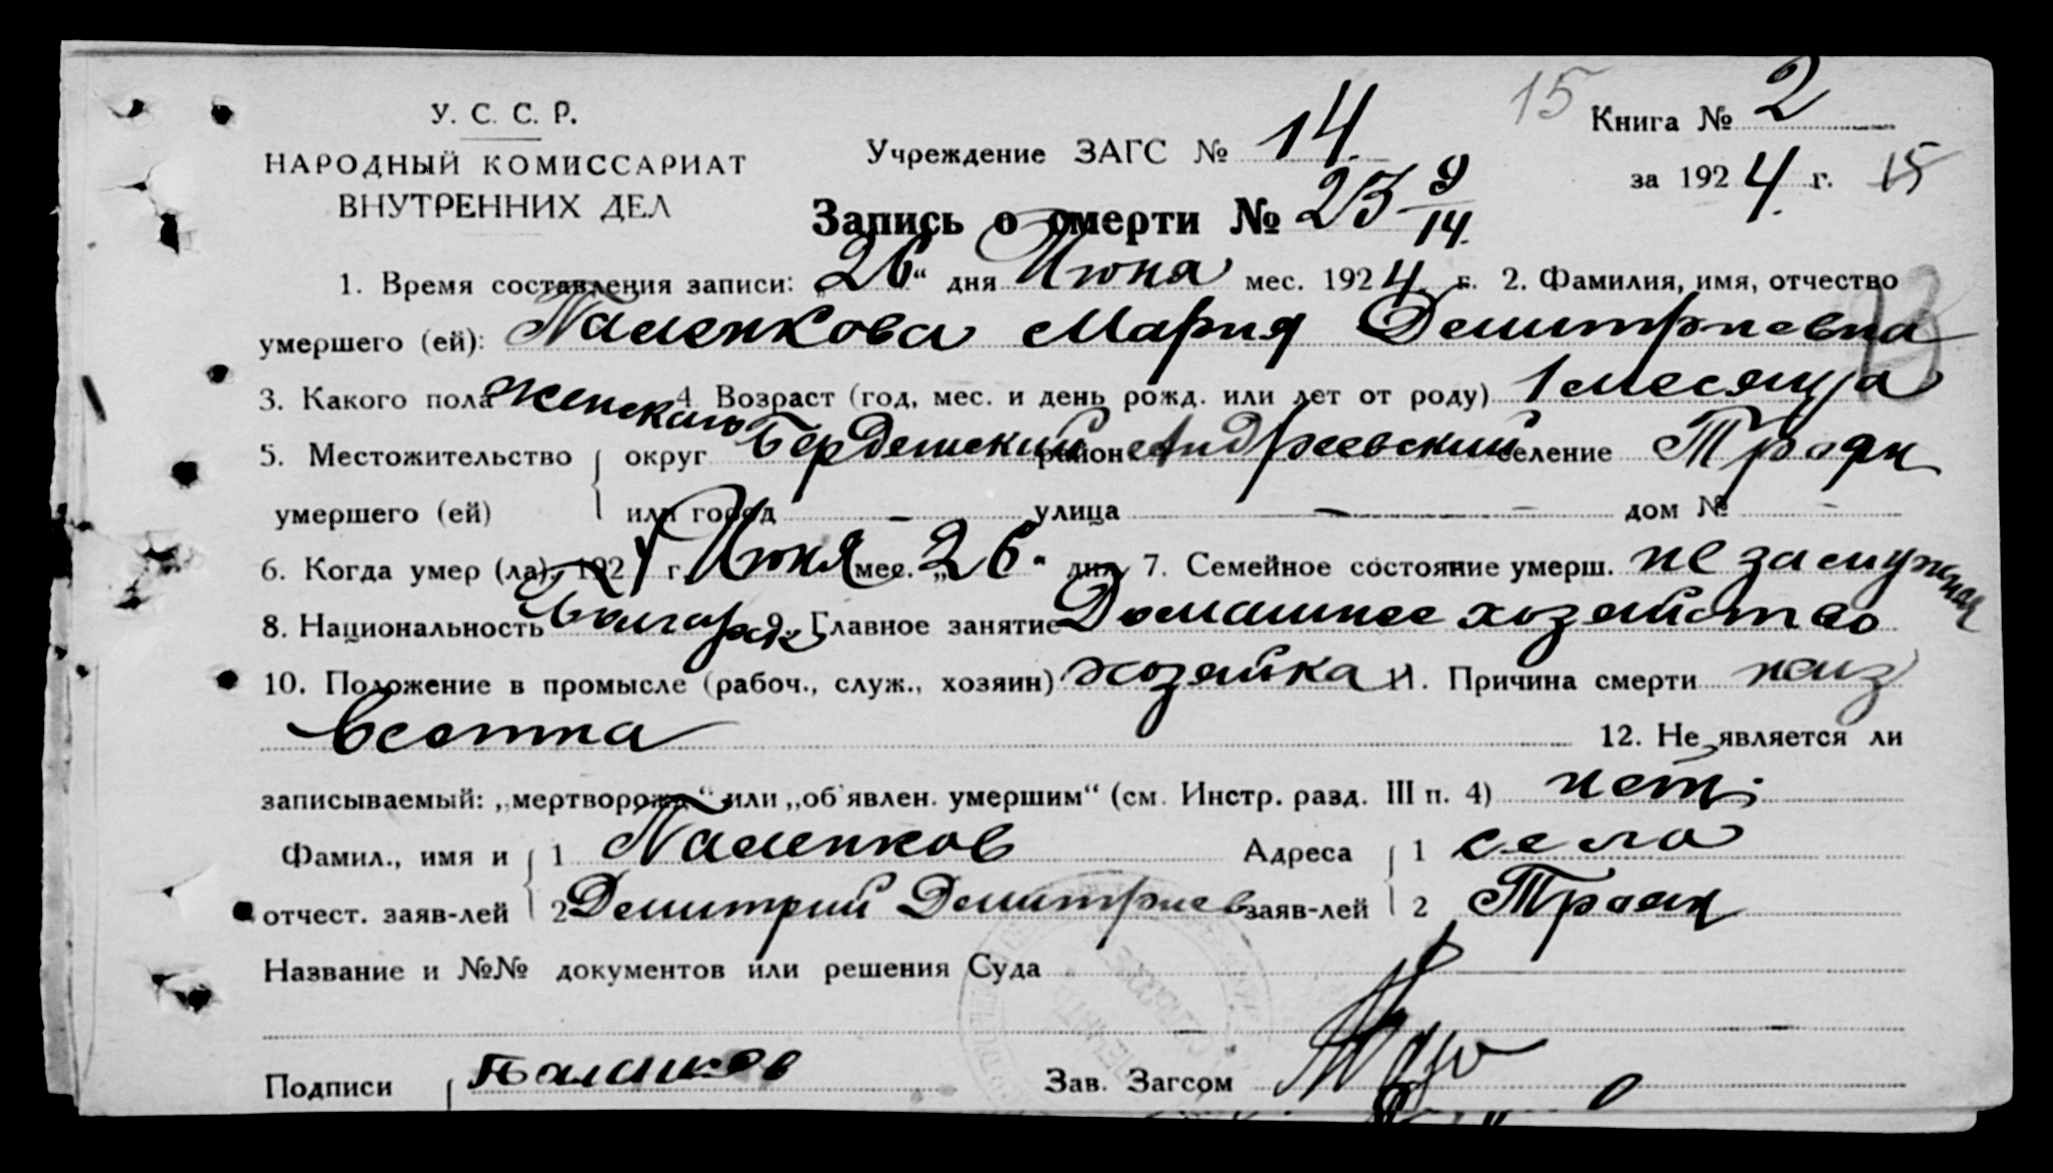 У. С. С. Р.
НАРОДНЫЙ КОМИССАРИАТ
ВНУТРЕННИХ ДЕЛ
Учреждение ЗАГС № 14.
15 Книга № 2
за 1924 г. 15
Запись о смерти № 23 9/14.
1. Время составления записи: „26“ дня Июня мес. 1924 г. 2. Фамилия, имя, отчество
умершего (ей): Паленкова Мария Демитриевна
3. Какого пола женскаго 4. Возраст (год, мес. и день рожд. или лет от роду) 1 месяца
5. Местожительство округ Бердянский район Андреевский селение Траян
умершего (ей) или город — улица — дом № —
6. Когда умер (ла) 1924 г. Июня мес. „26“ дня 7. Семейное состояние умерш. не замужная
8. Национальность Болгарка 9. Главное занятие Домашнее хозяйство
10. Положение в промысле (рабоч., служ., хозяин) хозяйка 11. Причина смерти
12. Не является ли
записываемый: „мертворожд.“ или „об'явлен. умершим“ (см. Инстр. разд. III п. 4) нет.
Фамил., имя и 1 Паленков Адреса 1 села
отчест. заяв-лей 2 Демитрий Демитриев заяв-лей 2 Траян
Название и №№ документов или решения Суда
Подписи Зав. Загсом